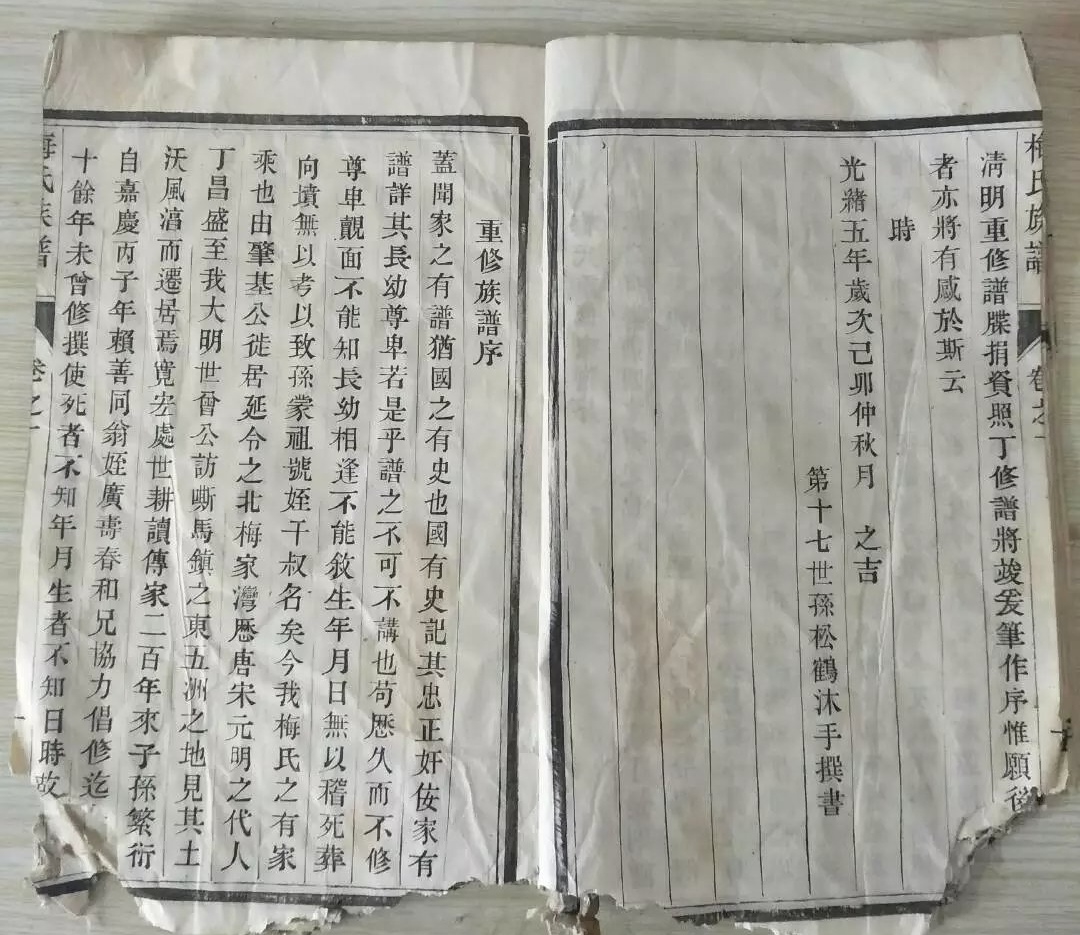 梅氏族譜
卷之一
清明重修譜牒捐資照丁修譜將竣爰筆作序惟願後
者亦將有感於斯云
時
光緒五年歲次己卯仲秋月 之吉
第十七世孫松鶴沐手撰書
重修族譜序
蓋聞家之有譜猶國之有史也國有史記其忠正奸佞家有
譜詳其長幼尊卑若是乎譜之不可不講也苟歷久而不修
尊卑觀面不能知長幼相逢不能敘生年月日無以稽死葬
向墳無以考以致孫蒙祖號姪干叔名矣今我梅氏之有家
乘也由肇基公徙居延令之北梅家灣歷唐宋元明之代人
丁昌盛至我大明世曾公訪嘶馬鎮之東五洲之地見其土
沃風湻而遷居焉寬宏處世耕讀傳家二百年來子孫繁衍
自嘉慶丙子年賴善同翁姪廣壽春和兄協力倡修迄
十餘年未曾修撰使死者不知年月生者不知日時故
梅氏族譜
卷之一